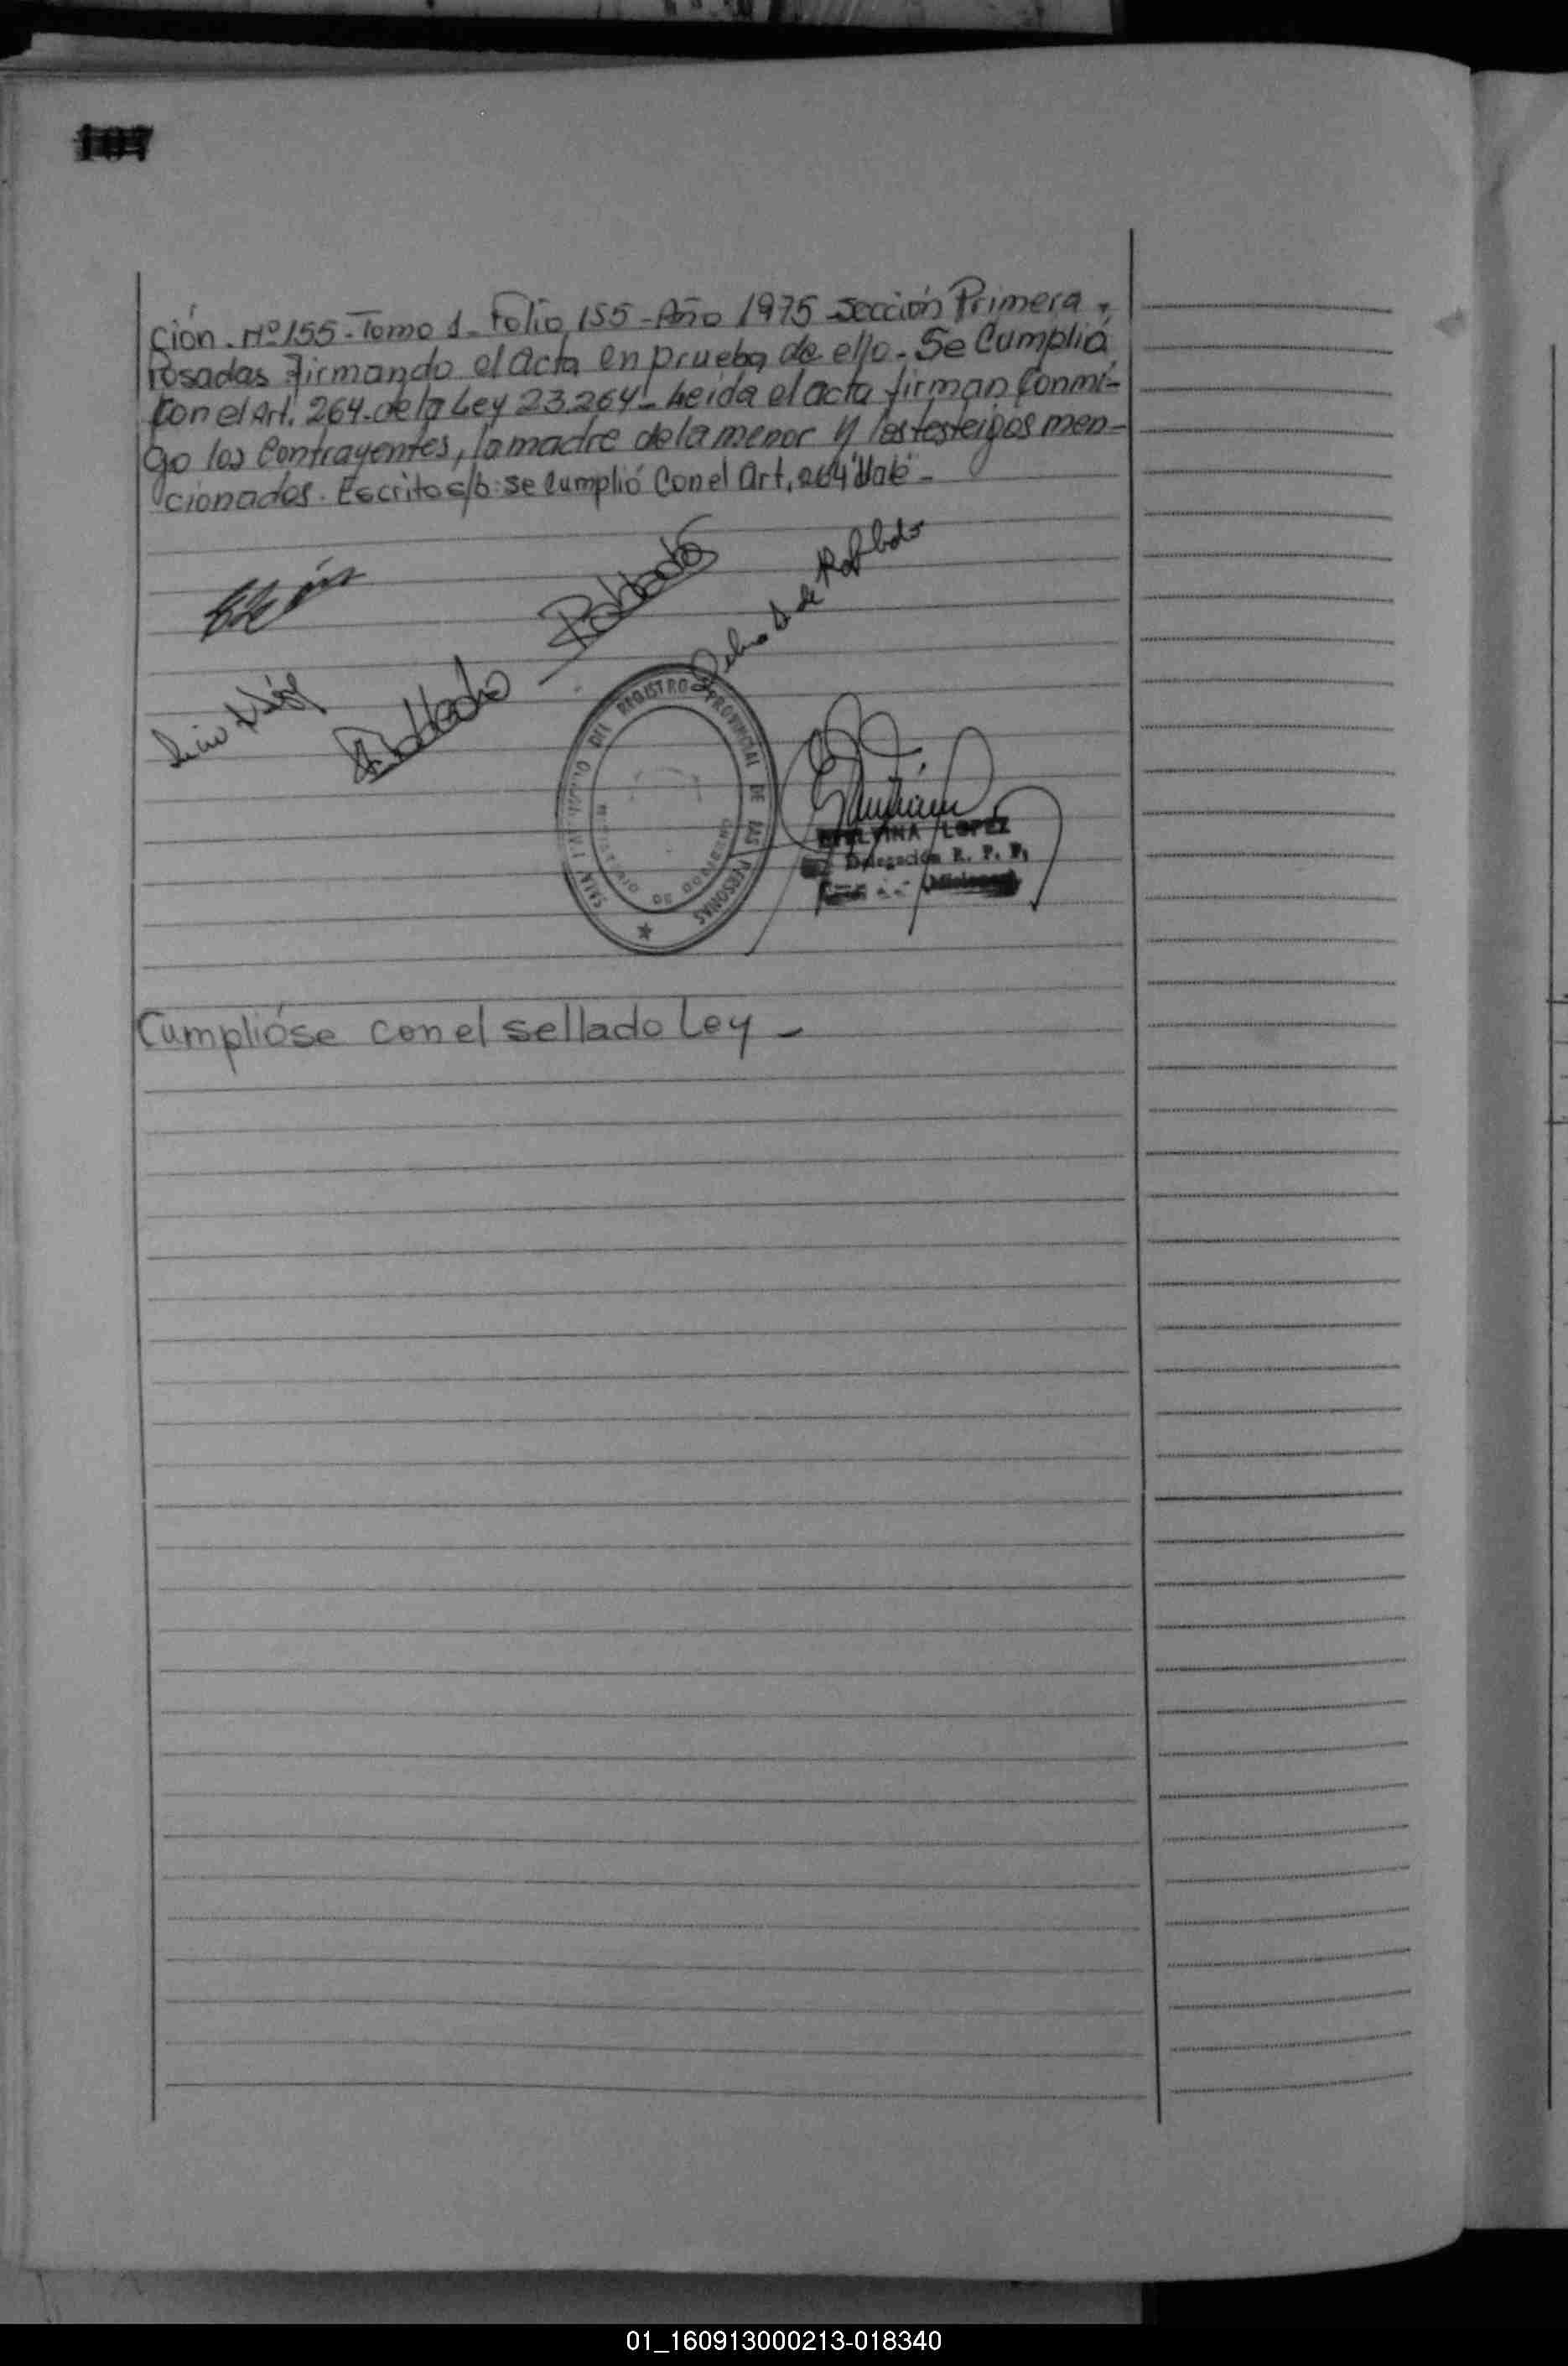 107
ción. Nº 155-Tomo 1-Folio 155-Año 1975 Sección Primera,
Posadas Firmando el acta en prueba de ello. Se Cumplió
Con el Art. 264. de la Ley 23.264- Leída el acta firman Conmi-
go los Contrayentes, la madre de la menor y los testeigos men-
cionados. Escrito s/b: se Cumplió Con el Art. 264 "Vale"-
Robledo
de Robledo
Robledo
DEL REGISTRO PROVINCIAL DE LAS PERSONAS
MINISTERIO DE GOBIERNO
LOPEZ
Delegación R. P. P.
(Misiones)
Cumplióse con el sellado Ley -
01_160913000213-018340